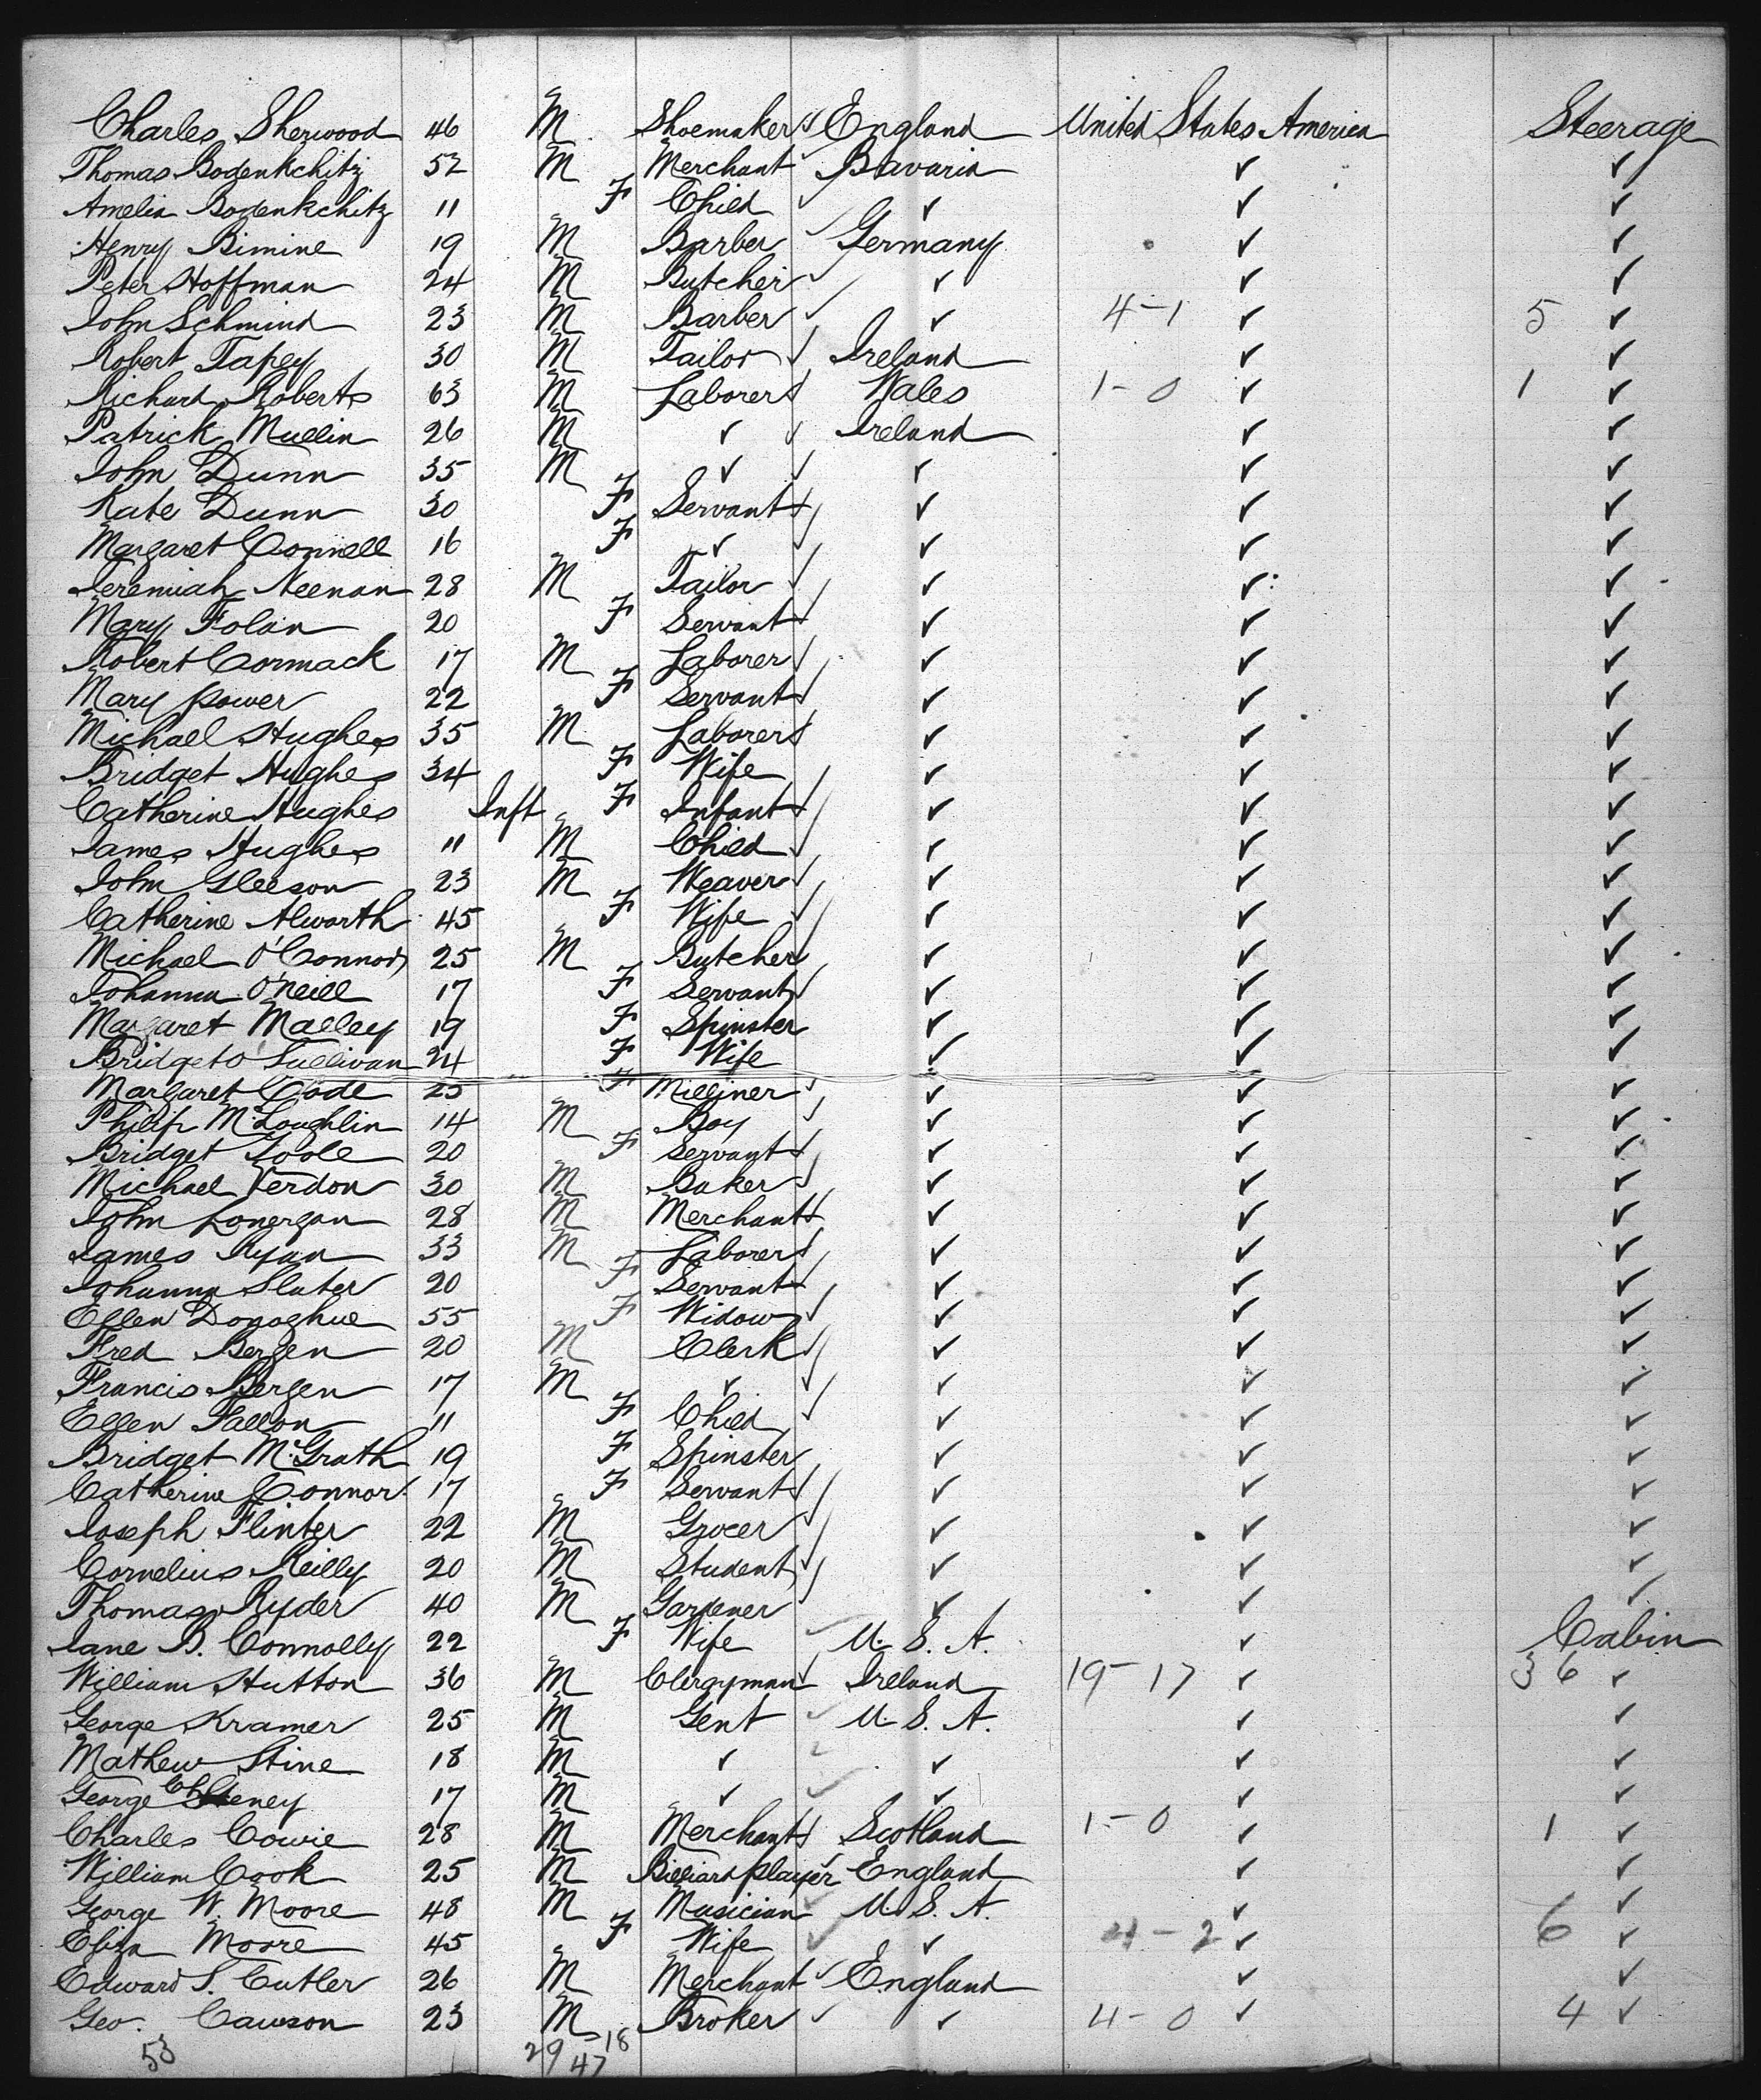 Charles Sherwood 46 M Shoemaker ✓ England United States America Steerage
Thomas Bodenkchitz 52 M Merchant ✓ Bavaria ✓ ✓
Amelia Bodenkchitz 11 F Child ✓ ✓ ✓ ✓
Henry Bimine 19 M Barber ✓ Germany ✓ ✓
Peter Hoffman 24 M Butcher ✓ ✓ ✓ ✓
John Schmind 23 M Barber ✓ ✓ 4-1 ✓ 5 ✓
Robert Tapey 30 M Tailor ✓ Ireland ✓ ✓
Richard Roberts 63 M Laborer ✓ Wales 1-0 ✓ 1 ✓
Patrick Mullin 26 M ✓ ✓ Ireland ✓ ✓
John Dunn 35 M ✓ ✓ ✓ ✓ ✓
Kate Dunn 30 F Servant ✓ ✓ ✓ ✓
Margaret Connell 16 F ✓ ✓ ✓ ✓ ✓
Jeremiah Neenan 28 M Tailor ✓ ✓ ✓ ✓
Mary Folan 20 F Servant ✓ ✓ ✓ ✓
Robert Cormack 17 M Laborer ✓ ✓ ✓ ✓
Mary Power 22 F Servant ✓ ✓ ✓ ✓
Michael Hughes 35 M Laborer ✓ ✓ ✓ ✓
Bridget Hughes 34 F Wife ✓ ✓ ✓
Catherine Hughes Inft F Infant ✓ ✓ ✓ ✓
James Hughes 11 M Child ✓ ✓ ✓ ✓
John Gleeson 23 M Weaver ✓ ✓ ✓ ✓
Catherine Alworth 45 F Wife ✓ ✓ ✓ ✓
Michael O'Connor 25 M Butcher ✓ ✓ ✓ ✓
Johanna O'Neill 17 F Servant ✓ ✓ ✓ ✓
Margaret Malley 19 F Spinster ✓ ✓ ✓
Bridget O Sullivan 24 F Wife ✓ ✓ ✓
Margaret Code 25 F Milliner ✓ ✓ ✓ ✓
Philip McLoughlin 14 M Boy ✓ ✓ ✓ ✓
Bridget Toole 20 F Servant ✓ ✓ ✓ ✓
Michael Verdon 30 M Baker ✓ ✓ ✓ ✓
John Lonergan 28 M Merchant ✓ ✓ ✓ ✓
James Ryan 33 M Laborer ✓ ✓ ✓ ✓
Johanna Slater 20 F Servant ✓ ✓ ✓ ✓
Ellen Donoghue 55 F Widow ✓ ✓ ✓ ✓
Fred Bergen 20 M Clerk ✓ ✓ ✓ ✓
Francis Bergen 17 M ✓ ✓ ✓ ✓ ✓
Ellen Fallon 11 F Child ✓ ✓ ✓ ✓
Bridget McGrath 19 F Spinster ✓ ✓ ✓
Catherine Connor 17 F Servant ✓ ✓ ✓ ✓
Joseph Flinter 22 M Grocer ✓ ✓ ✓ ✓
Cornelius Reilly 20 M Student ✓ ✓ ✓ ✓
Thomas Ryder 40 M Gardener ✓ ✓ ✓
Jane B. Connolly 22 F Wife ✓ U.S.A. ✓ Cabin
William Hutton 36 M Clergyman ✓ Ireland 19-17 ✓ 36 ✓
George Kramer 25 M Gent ✓ U.S.A. ✓ ✓
Mathew Stine 18 M ✓ ✓ ✓ ✓ ✓
George Cheney 17 M ✓ ✓ ✓ ✓ ✓
Charles Cowie 28 M Merchant ✓ Scotland 1-0 ✓ 1 ✓
William Cook 25 M Billiard player ✓ England ✓ ✓
George W. Moore 48 M Musician ✓ U.S.A. ✓ ✓
Eliza Moore 45 F Wife ✓ ✓ 4-2 ✓ 6 ✓
Edward S. Cutler 26 M Merchant ✓ England ✓ ✓
Geo. Cawson 23 M Broker ✓ ✓ 4-0 ✓ 4 ✓
53 29 47 18